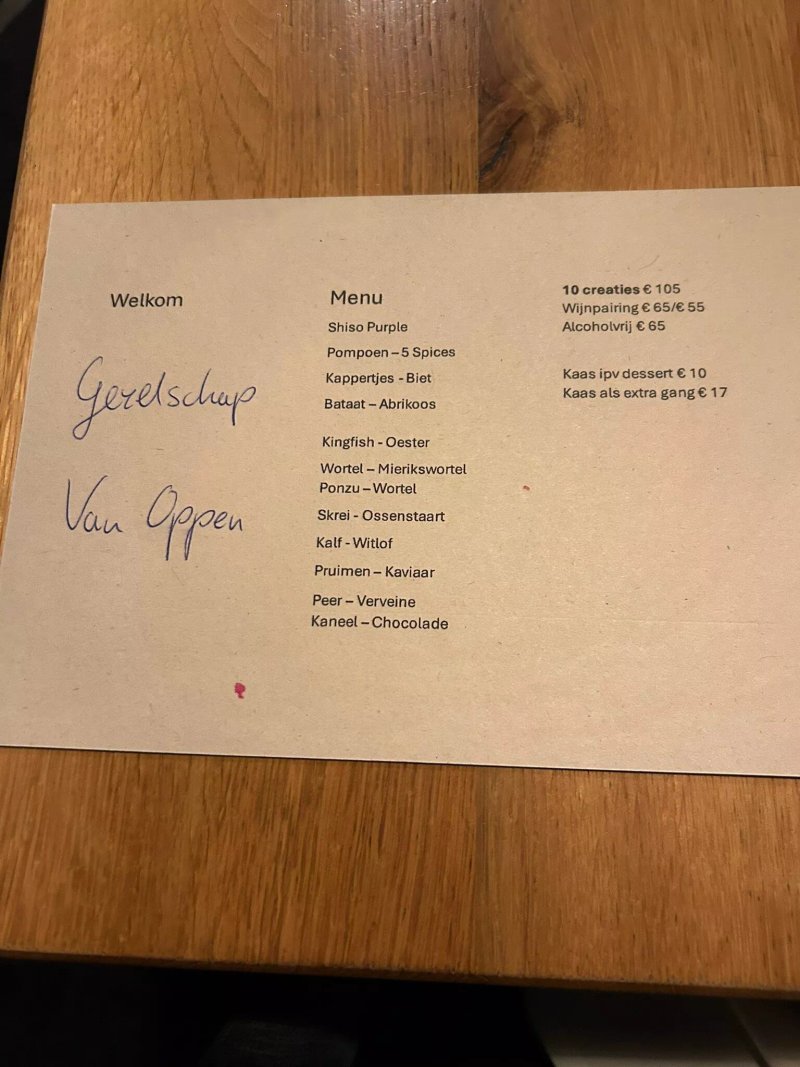 Welkom
Gezelschap
Van Oppen
Menu
Shiso Purple
Pompoen – 5 Spices
Kappertjes - Biet
Bataat – Abrikoos
Kingfish - Oester
Wortel – Mierikswortel
Ponzu – Wortel
Skrei - Ossenstaart
Kalf - Witlof
Pruimen – Kaviaar
Peer – Verveine
Kaneel – Chocolade
10 creaties € 105
Wijnpairing € 65/€ 55
Alcoholvrij € 65
Kaas ipv dessert € 10
Kaas als extra gang € 17